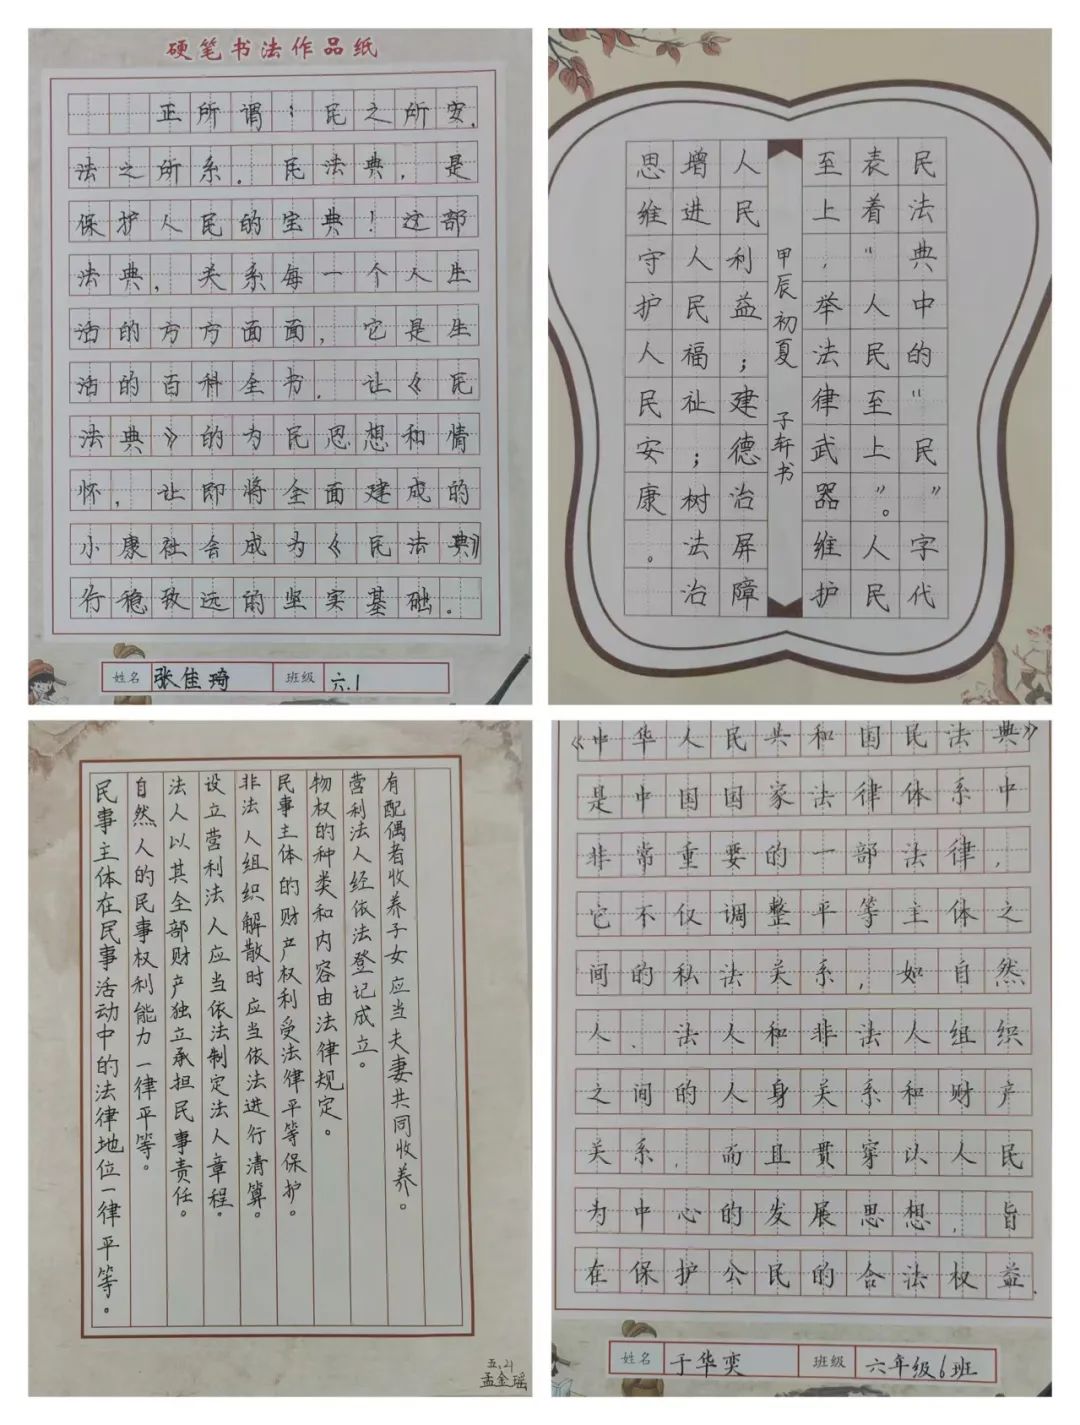 硬笔书法作品纸
正所谓：民之所安，
法之所系。民法典，是
保护人民的宝典！这部
法典，关系每一个人生
活的方方面面，它是生
活的百科全书，让《民
法典》的为民思想和情
怀，让即将全面建成的
小康社会成为《民法典》
行稳致远的坚实基础。
姓名 张佳琦 班级 六.1
民法典中的“民”字代
表着“人民至上”。人民
至上，举法律武器维护
甲辰初夏 子轩书
人民利益；建德治屏障
增进人民福祉；树法治
思维守护人民安康。
有配偶者收养子女应当夫妻共同收养。
营利法人经依法登记成立。
物权的种类和内容由法律规定。
民事主体的财产权利受法律平等保护。
非法人组织解散时应当依法进行清算。
设立营利法人应当依法制定法人章程。
法人以其全部财产独立承担民事责任。
自然人的民事权利能力一律平等。
民事主体在民事活动中的法律地位一律平等。
五.21
孟金瑶
《中华人民共和国民法典》
是中国国家法律体系中
非常重要的一部法律，
它不仅调整平等主体之
间的私法关系，如自然
人、法人和非法人组织
之间的人身关系和财产
关系，而且贯穿以人民
为中心的发展思想，旨
在保护公民的合法权益.
姓名 于华奕 班级 六年级6班